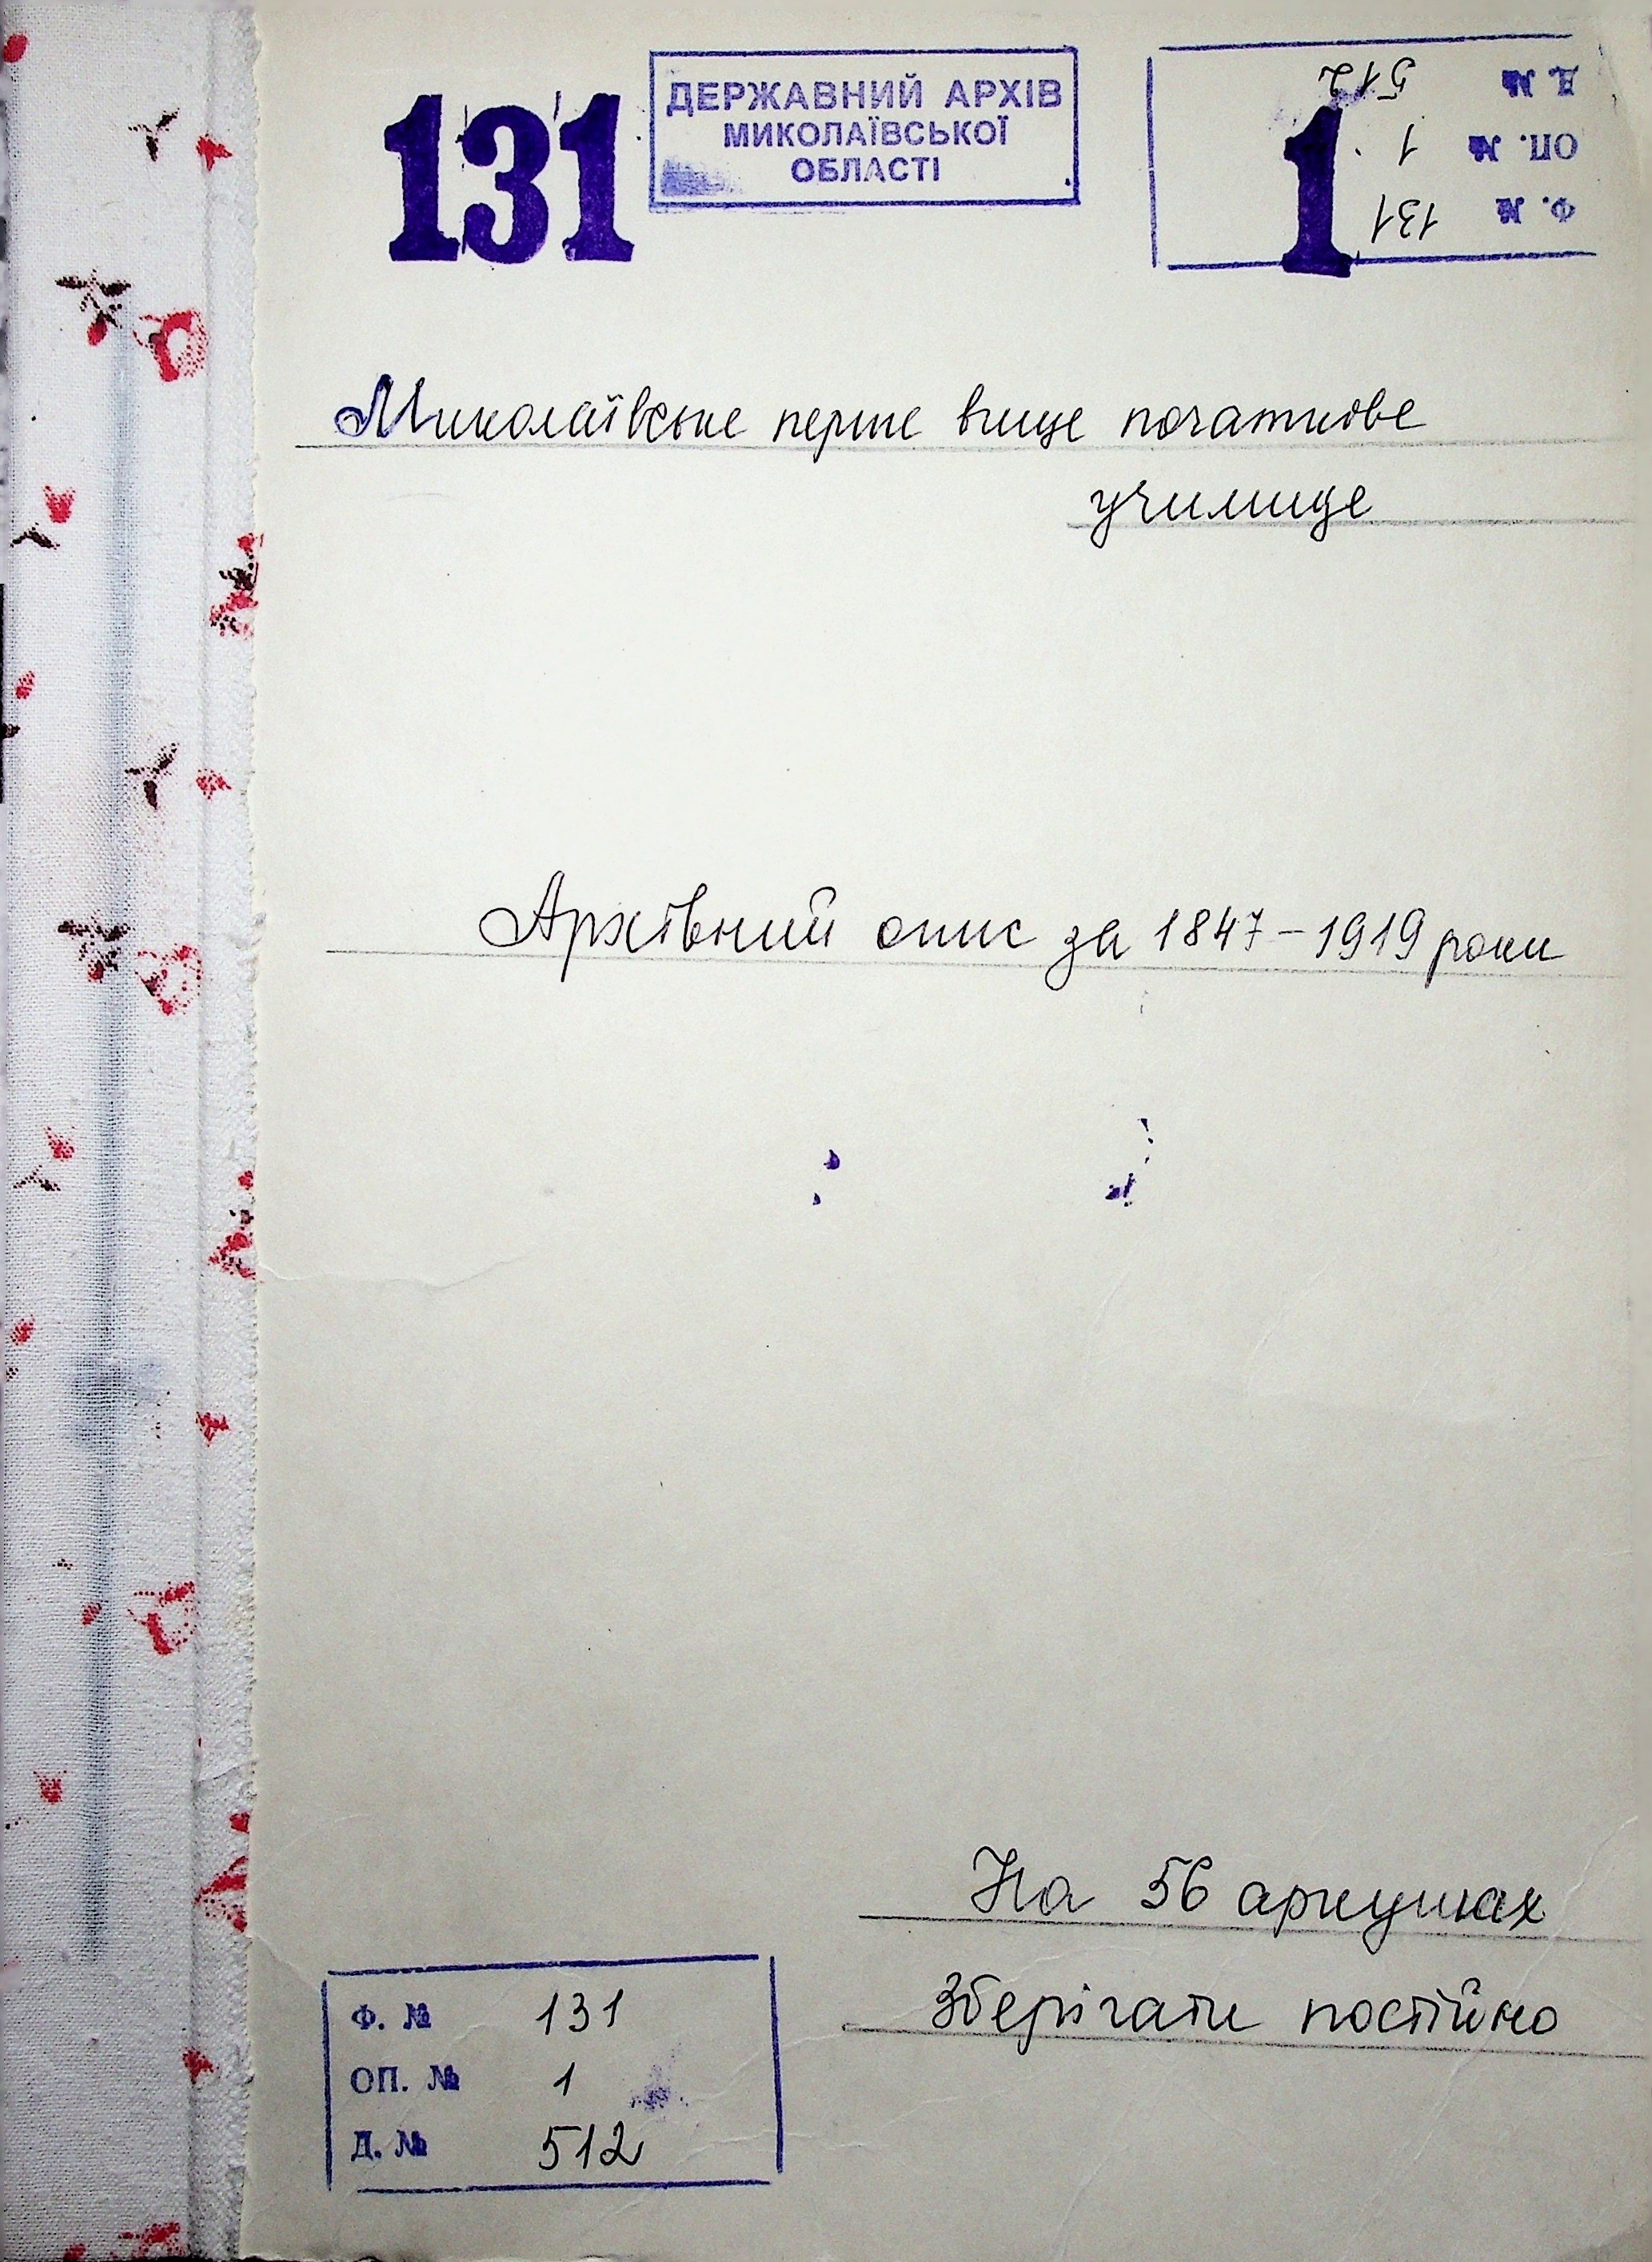 131
ДЕРЖАВНИЙ АРХІВ
МИКОЛАЇВСЬКОЇ
ОБЛАСТІ
1
Ф. № 131
ОП. № 1
Д. № 512
Миколаївське перше вище початкове
училище
Архівний опис за 1847-1919 роки
На 56 аркушах
Зберігати постійно
Ф. № 131
ОП. № 1
Д. № 512